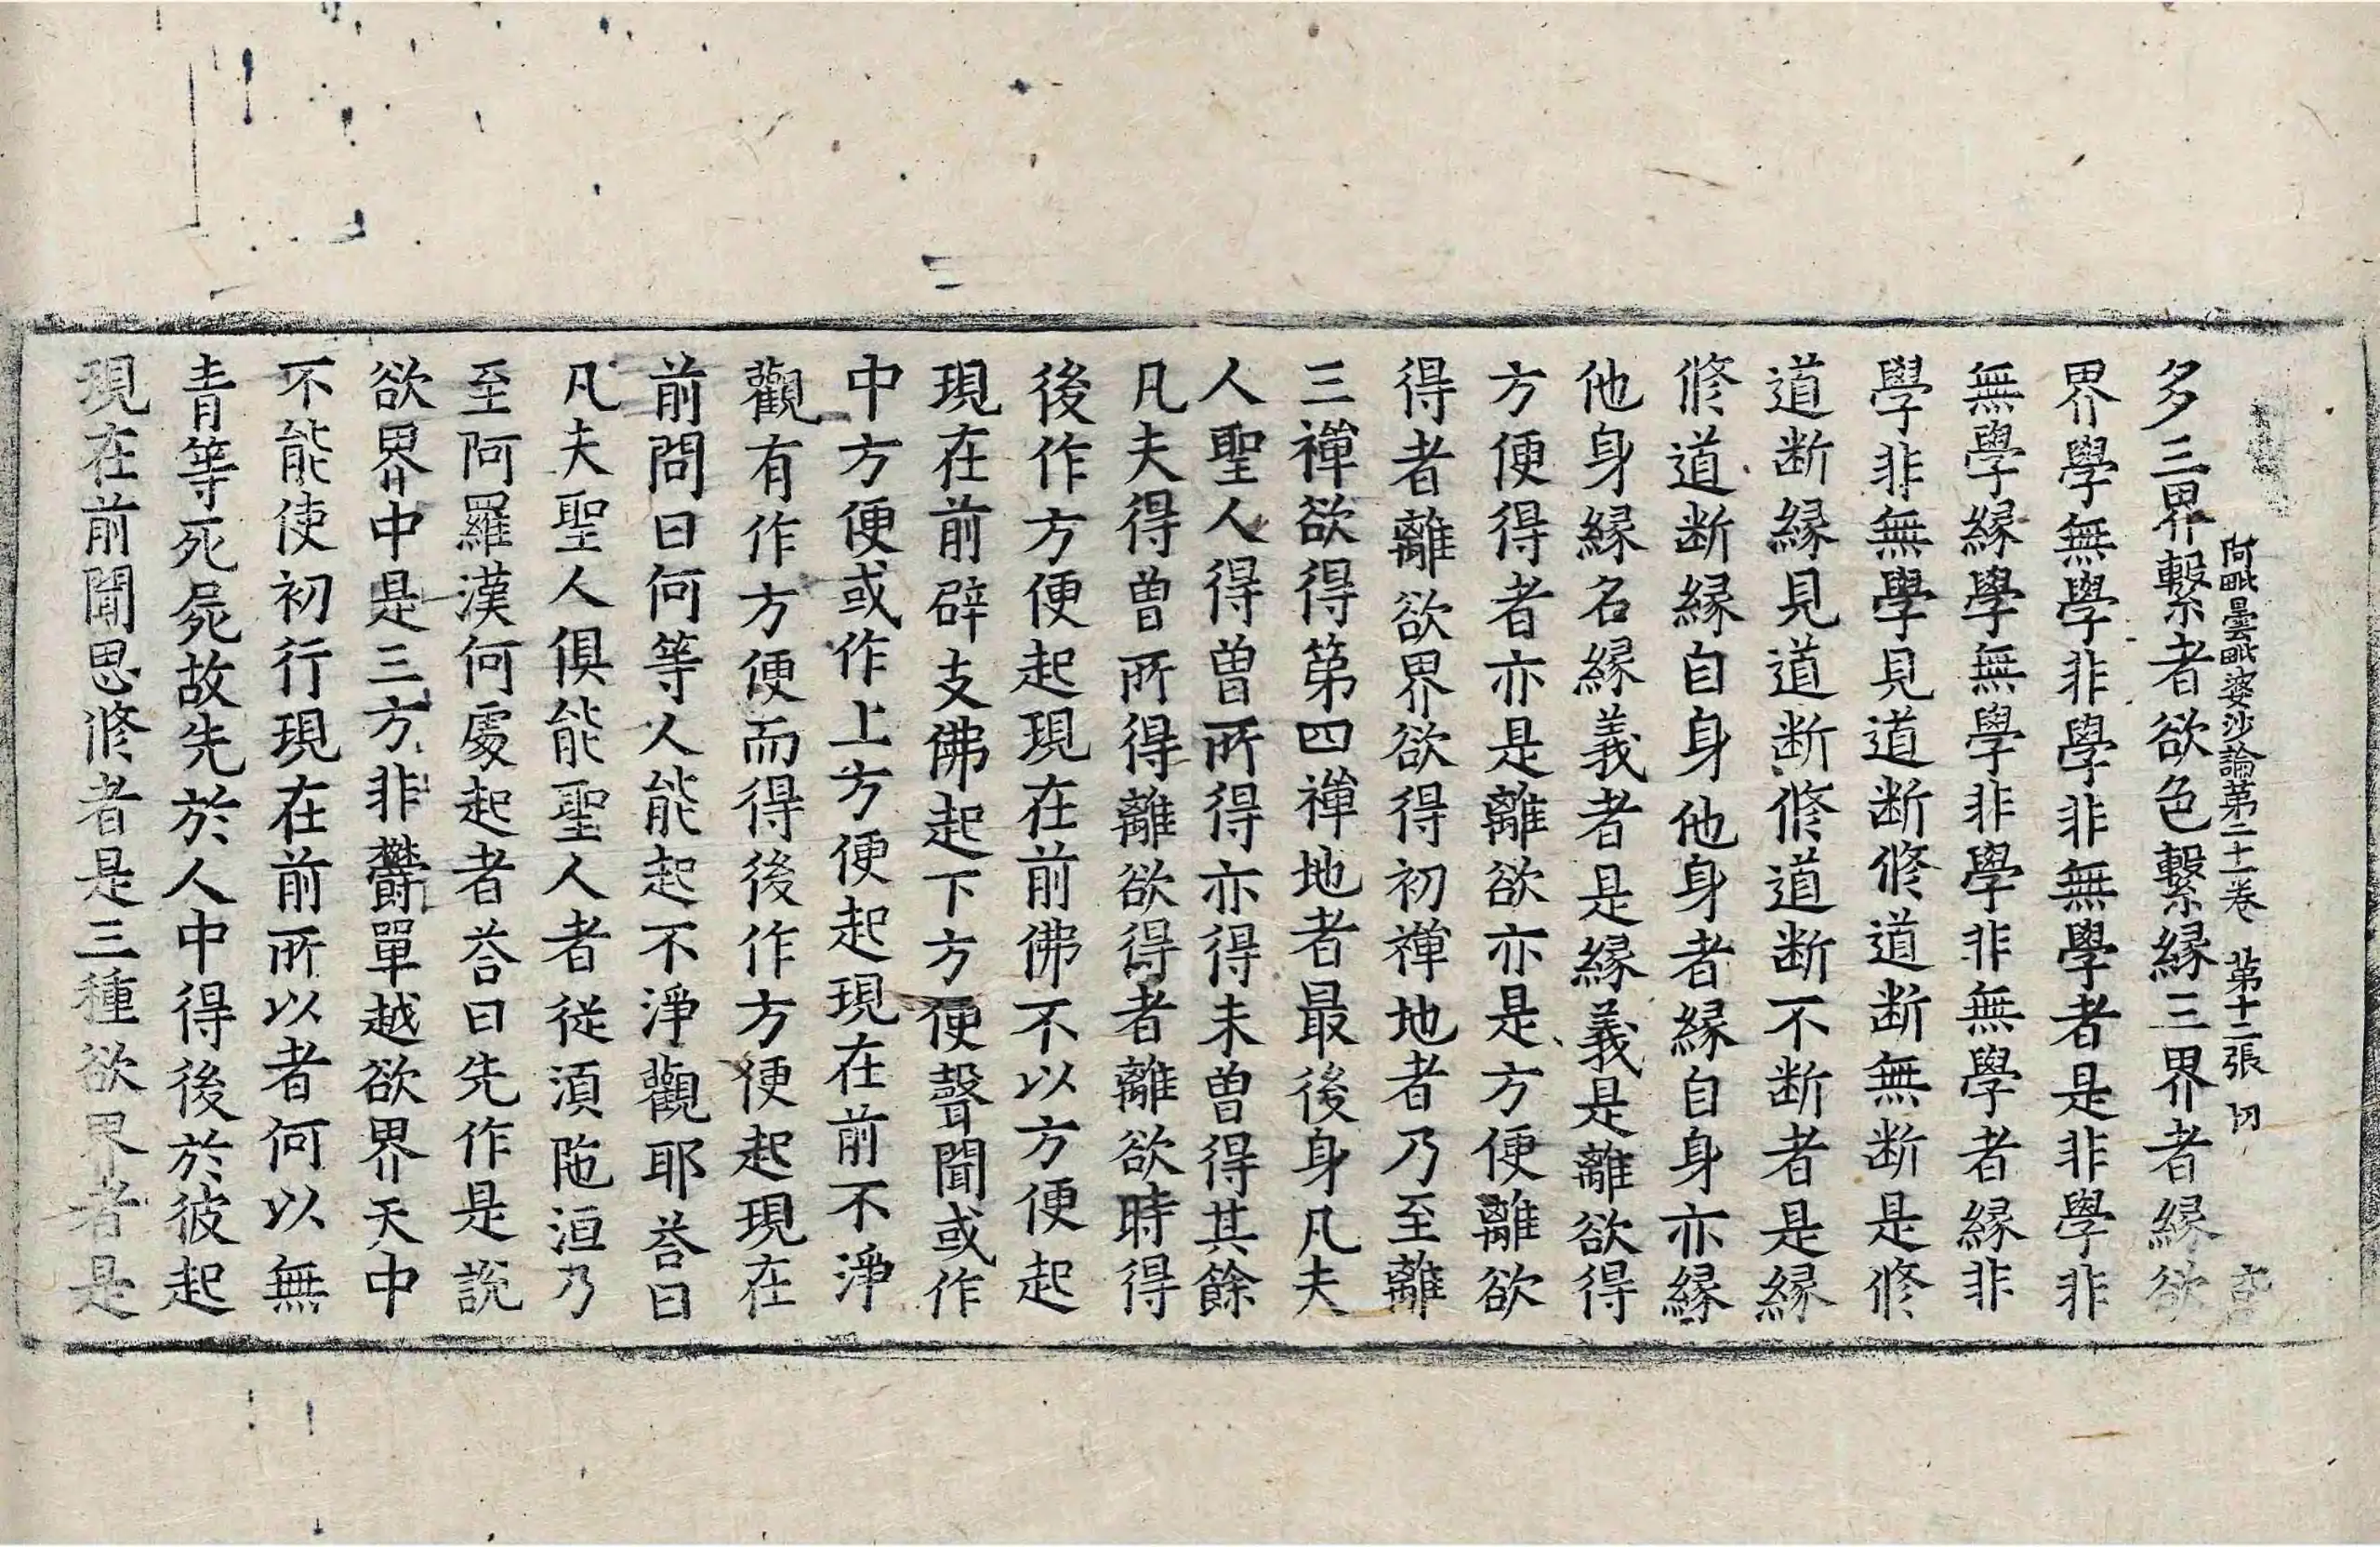 阿毗曇毗婆沙論第二十一卷　第十二張　切
多三界繫者欲色繫緣三界者緣欲
界學無學非學非無學者是非學非
無學緣學無學非學非無學者緣非
學非無學見道断修道断無断是修
道断緣見道断修道断不断者是緣
修道断緣自身他身者緣自身亦緣
他身緣名緣義者是緣義是離欲得
方便得者亦是離欲亦是方便離欲
得者離欲界欲得初禅地者乃至離
三禅欲得第四禅地者最後身凡夫
人聖人得曾所得亦得未曾得其餘
凡夫得曾所得離欲得者離欲時得
後作方便起現在前佛不以方便起
現在前辟支佛起下方便聲聞或作
中方便或作上方便起現在前不淨
觀有作方便而得後作方便起現在
前問曰何等人能起不淨觀耶荅曰
凡夫聖人俱能聖人者從湏陁洹乃
至阿羅漢何處起者荅曰先作是說
欲界中是三方非欝單越欲界天中
不能使初行現在前所以者何以無
青等死屍故先於人中得後於彼起
現在前聞思修者是三種欲界者是